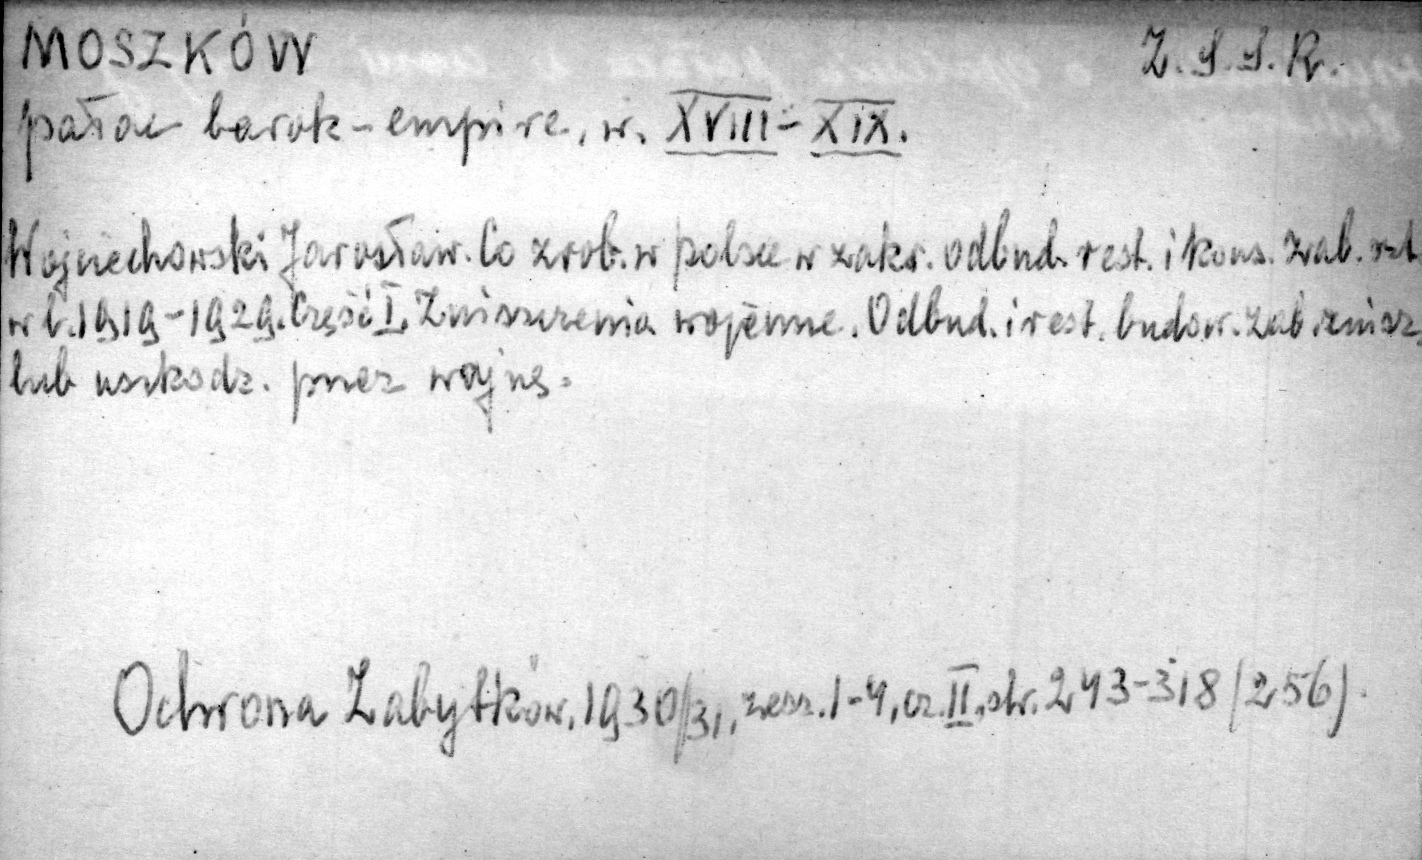 MOSZKÓW Z.S.S.R.
pałac barok-empire, w. XVIII-XIX.
Wojciechowski Jarosław. Co zrob. w polsce w zakr. odbud. rest. i kons. zab. szt.
w l. 1919-1929. Część I. Zniszczenia wojenne. Odbud. i rest. budow. zab. znisz.
lub uszkodz. przez wojnę.
Ochrona Zabytków, 1930/31, zesz. 1-4, cz. II, str. 243-318 (256).